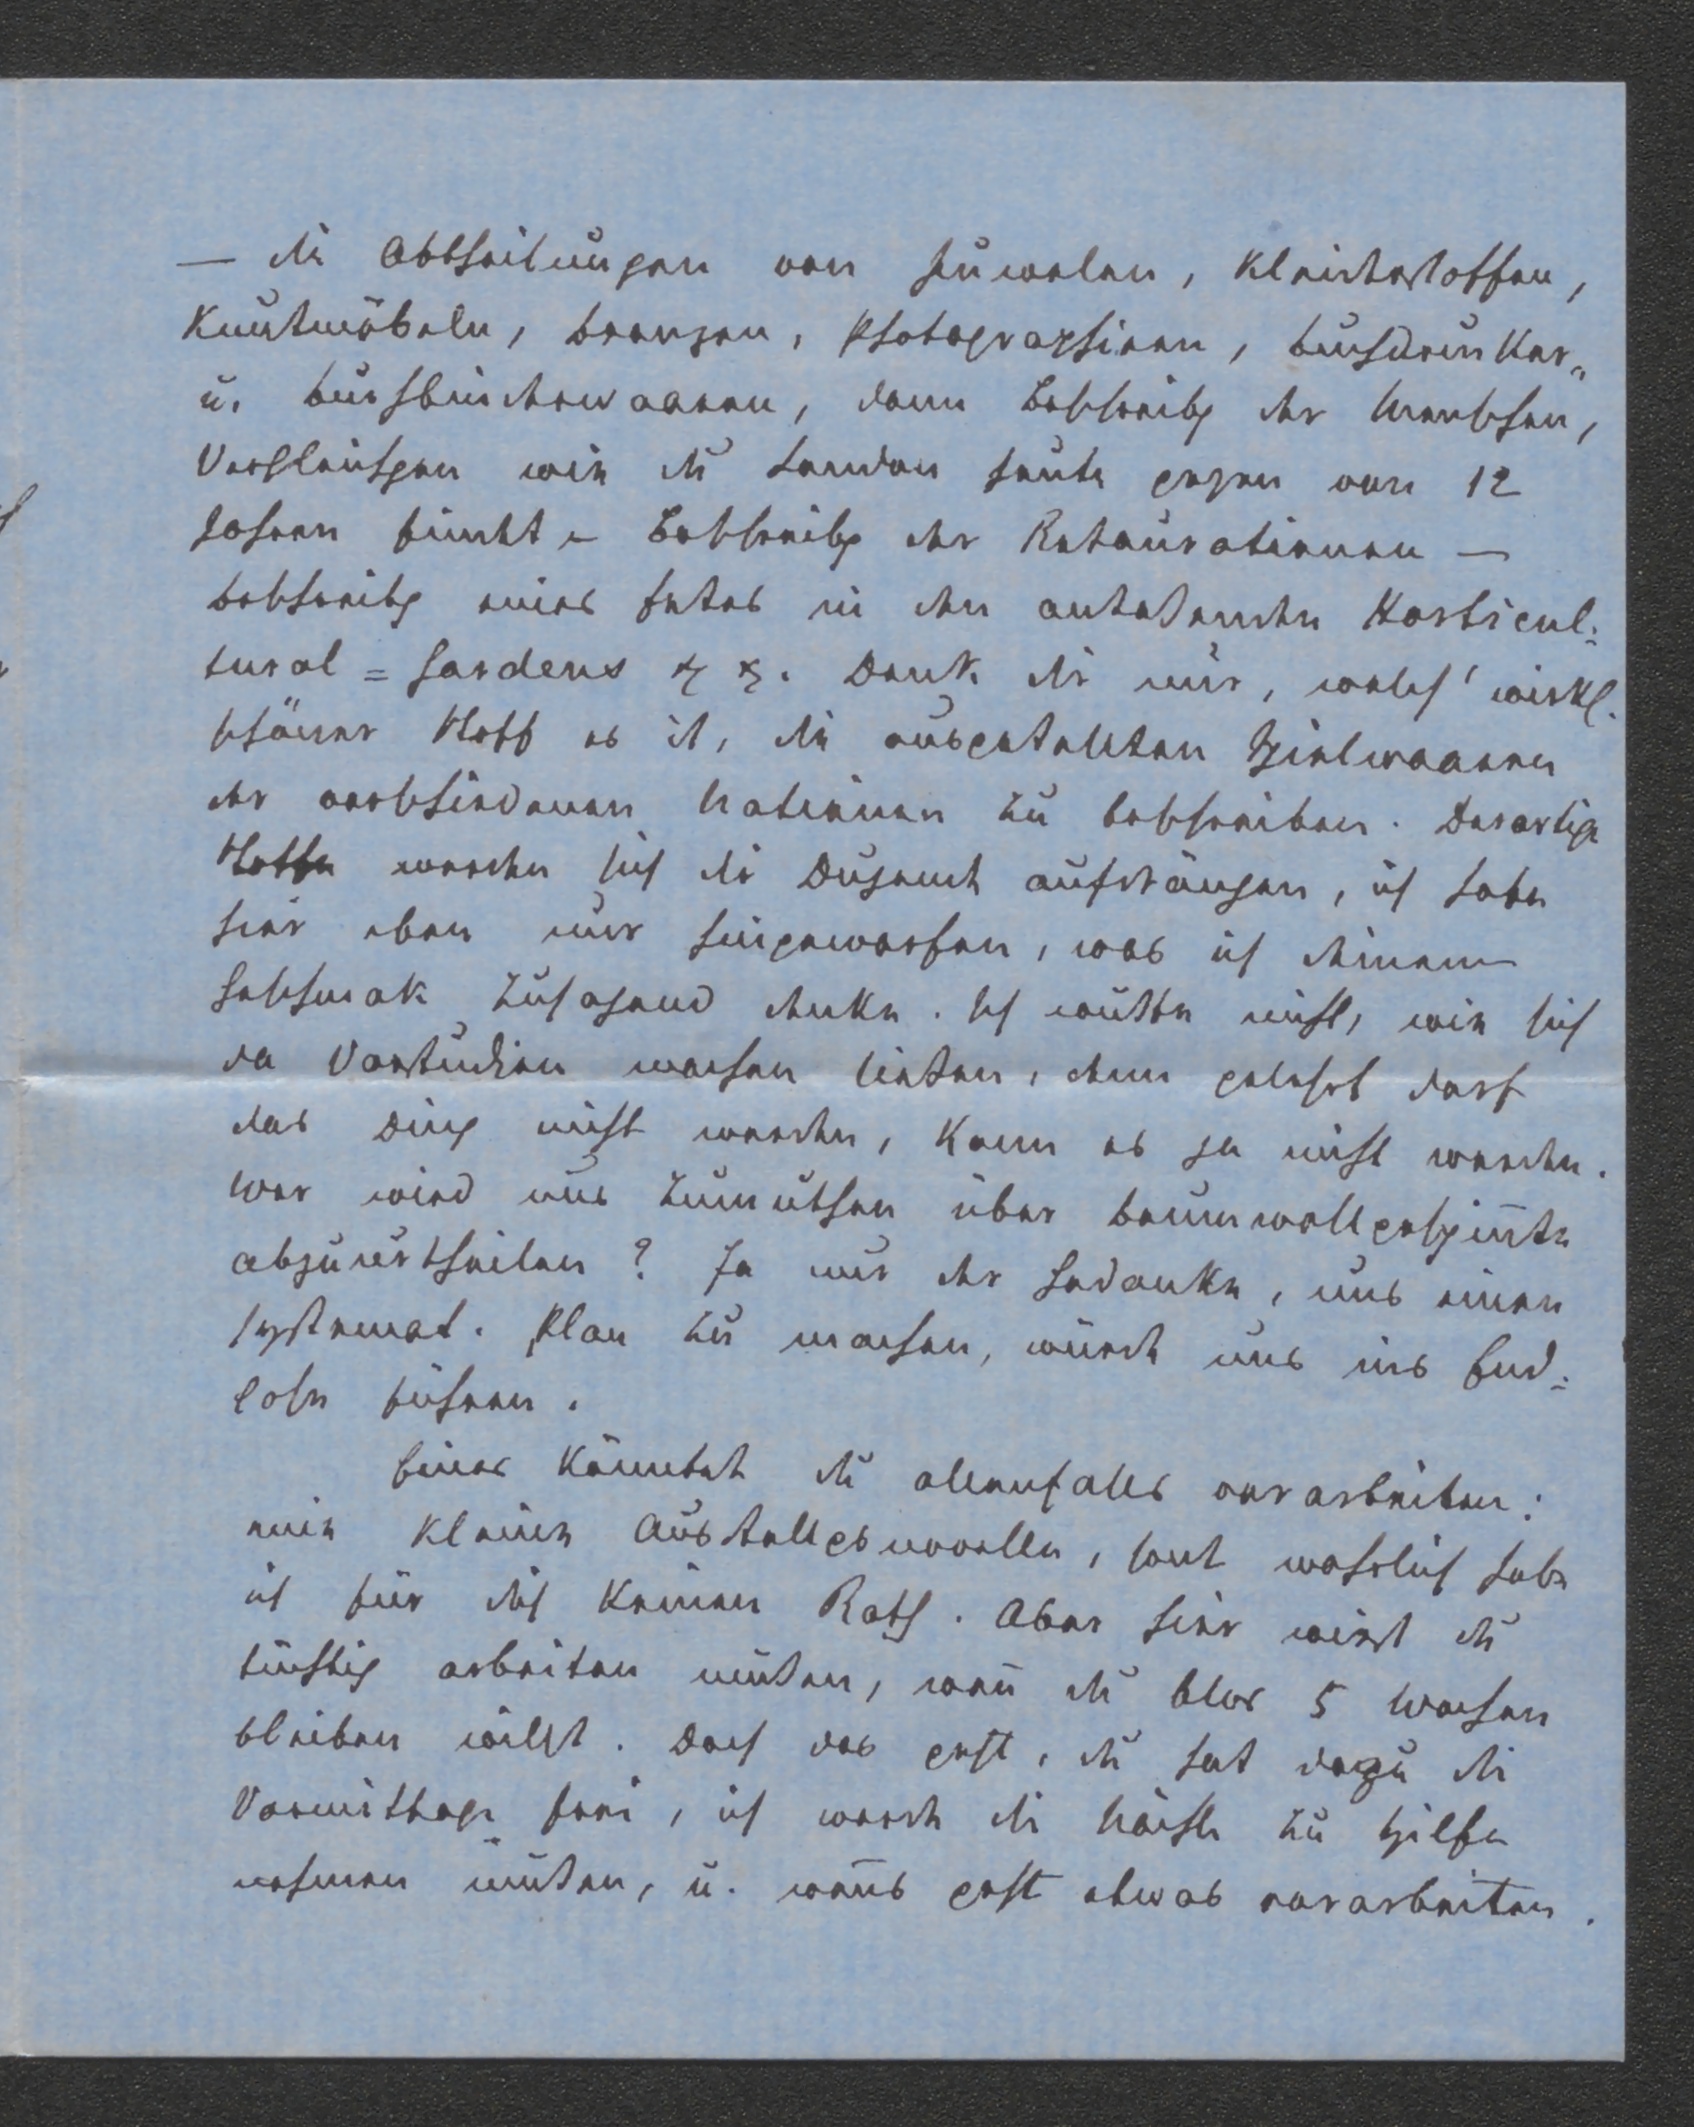 — die Abtheilungen von Juwelen, Kleiderstoffen,
Kunstmöbeln, Bronzen, Photographieen, Buchdrucker-
u. Buchbinderwaaren, dann Beschreibg der Menschen,
Vergleichgen wie du London heute gegen vor 12
Jahren findest – Beschreibg der Restaurationen —
Beschreibg eines Festes in den anstoßenden Horticul=
tural=Gardens &c &c. Denk dir nur, welch' wirkl.
schöner Stoff es ist, die ausgestellten Spielwaaren
der verschiedenen Nationen zu beschreiben. Derartige
Stoffe werden sich dir Dutzende aufdrängen, ich habe
hier eben nur hingeworfen, was ich deinem
Geschmak zusagend denke. Ich wüßte nicht, wie sich
da Vorstudien machen ließen, denn gelehrt darf
das Ding nicht werden, kann es ja nicht werden.
Wer wird uns zumuthen über Baumwollgespinnste
abzuurtheilen? Ja nur der Gedanke, uns einen
systemat. Plan zu machen, würde uns ins End=
lose führen.
Eines könntest du allenfalls vorarbeiten:
eine kleine Ausstellgsnovelle, sonst wahrlich habe
ich für dich keinen Rath. Aber hier wirst du
tüchtig arbeiten müßen, wen̄ du blos 5 Wochen
bleiben willst. Doch das geht, du hast dazu die
Vormittage frei, ich werde die Nächte zu Hilfe
nehmen müßen, u. wen̄s geht etwas vorarbeiten.